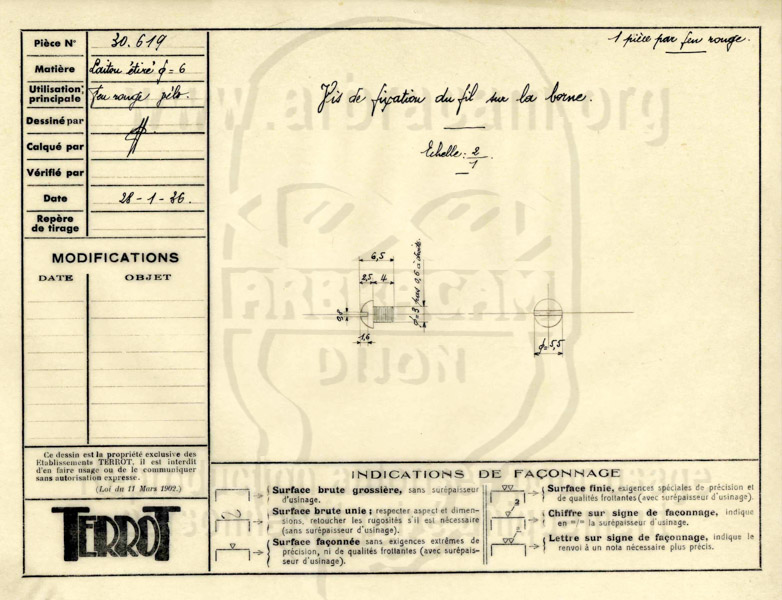 Pièce N° 30.619
1 pièce par feu rouge.
Matière Laiton étiré ϕ = 6
Utilisation principale feu rouge vélo.
Dessiné par
Calqué par
Vérifié par
Date 28-1-36.
Repère de tirage
Vis de fixation du fil sur la borne.
Echelle: 2/1.
MODIFICATIONS
DATE OBJET
6,5
2,5 4
0,8
1,6
ϕ = 3 pas 0,6 à droite
ϕ = 5,5
www.arbracam.org
ARBRACAM
DIJON
Ce dessin est la propriété exclusive des
Etablissements TERROT, il est interdit
d'en faire usage ou de le communiquer
sans autorisation expresse.
(Loi du 11 Mars 1902.)
TERROT
INDICATIONS DE FAÇONNAGE
Surface brute grossière, sans surépaisseur
d'usinage.
Surface brute unie; respecter aspect et dimen-
sions, retoucher les rugosités s'il est nécessaire
(sans surépaisseur d'usinage).
Surface façonnée sans exigences extrêmes de
précision, ni de qualités frottantes (avec surépais-
seur d'usinage).
Surface finie, exigences spéciales de précision et
de qualités frottantes (avec surépaisseur d'usinage).
Chiffre sur signe de façonnage, indique
en m/m la surépaisseur d'usinage.
Lettre sur signe de façonnage, indique le
renvoi à un nota nécessaire plus précis.